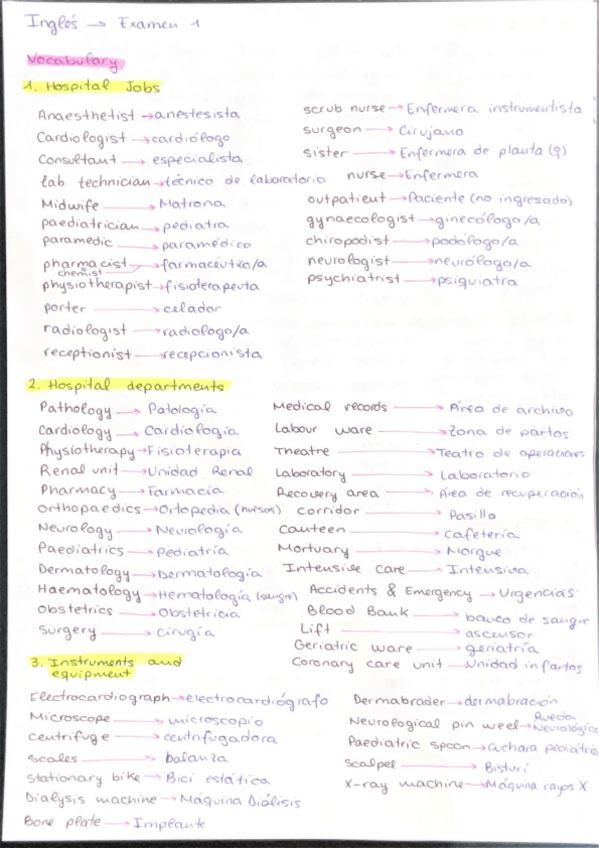 Inglés → Examen 1
Vocabulary
1. Hospital Jobs
Anaesthetist → anestesista
Cardiologist → cardiólogo
Consultant → especialista
lab technician → técnico de laboratorio
Midwife → Matrona
paediatrician → pediatra
paramedic → paramédico
pharmacist → farmacéutico/a
chemist
physiotherapist → fisioterapeuta
porter → celador
radiologist → radiologo/a
receptionist → recepcionista
scrub nurse → Enfermera instrumentista
surgeon → Cirujano
sister → Enfermera de planta (♀)
nurse → Enfermera
outpatient → Paciente (no ingresado)
gynaecologist → ginecólogo/a
chiropodist → podólogo/a
neurologist → neurólogo/a
psychiatrist → psiquiatra
2. Hospital departments
Pathology → Patología
Cardiology → Cardiología
Physiotherapy → Fisioterapia
Renal unit → Unidad Renal
Pharmacy → Farmacia
Orthopaedics → Ortopedia (huesos)
Neurology → Neurología
Paediatrics → Pediatría
Dermatology → Dermatología
Haematology → Hematología (sangre)
Obstetrics → Obstetricia
Surgery → cirugía
Medical records → Área de archivo
Labour ware → Zona de partos
Theatre → Teatro de operaciones
Laboratory → Laboratorio
Recovery area → Área de recuperación
Corridor → Pasillo
Canteen → Cafetería
Mortuary → Morgue
Intensive Care → Intensiva
Accidents & Emergency → Urgencias
Blood Bank → banco de sangre
Lift → ascensor
Geriatric ware → geriatría
Coronary care unit → Unidad infartos
3. Instruments and
equipment
Electrocardiograph → electrocardiógrafo
Microscope → microscopio
Centrifuge → centrifugadora
Scales → balanza
Stationary bike → Bici estática
Dialysis machine → Máquina Diálisis
Bone plate → Implante
Dermabrader → dermabración
Neurological pin weel → Rueda
Neurológica
Paediatric spoon → Cuchara pediátric
Scalpel → Bisturí
X-ray machine → Máquina rayos X